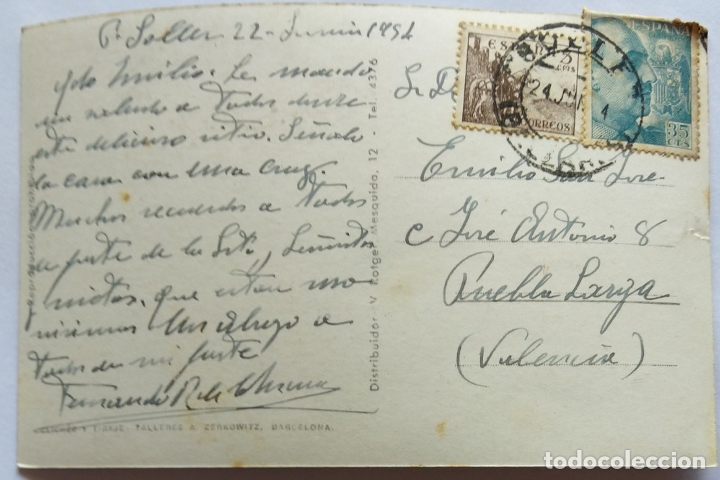 P. Soller 22 - Junio 1954
Qdo Emilio. Le mando
un saludo a todos desde
este delicioso sitio. Señalo
la casa con una cruz.
Muchos recuerdos a todos
de parte de la Srta, Señoritos
nietos, que estan mo
nisimos Un abrazo a
todos de mi parte
Fernando R de
Distribuidor V Rotger Mesquida, 12 - Tel. 4376
CLICHÉS Y TIRAJE: TALLERES A. ZERKOWITZ, BARCELONA.
ESPAÑA
CORREOS
5 CTS
ESPAÑA
35 CTS
24 JUN
Sr D
Emilio San Jose
c José Antonio 8
Puebla Larga
(Valencia)
todocoleccion.net